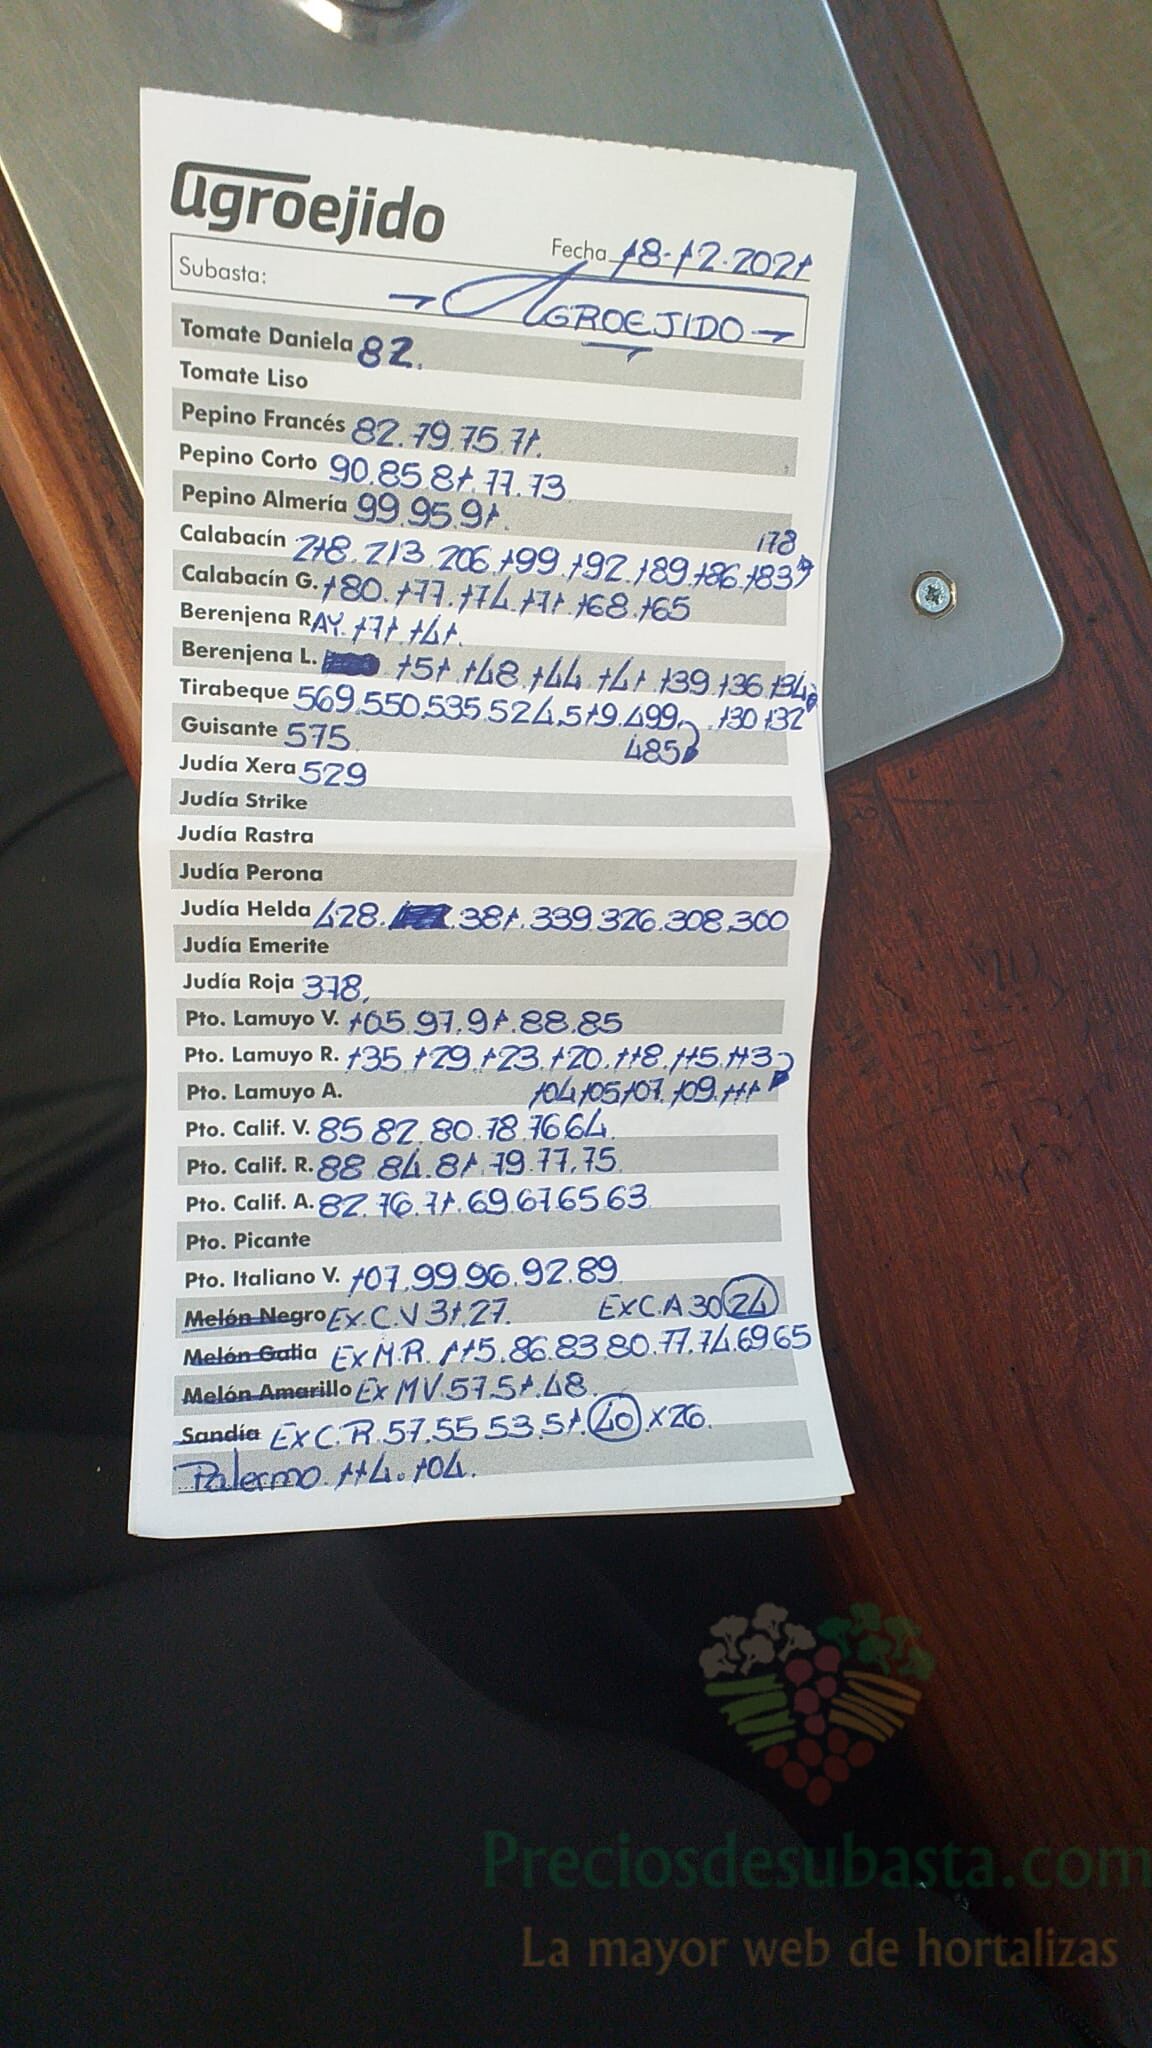 agroejido
Fecha 18-12-2021
Subasta: → AGROEJIDO →
Tomate Daniela 82.
Tomate Liso
Pepino Francés 82.79.75.71.
Pepino Corto 90.85.81.77.73
Pepino Almería 99.95.91.
178
Calabacín 218.213.206.199.192.189.186.183
Calabacín G. 180.177.174.171.168.165
Berenjena RAY. 171.141.
Berenjena L. 151.148.144.141.139.136.134
130 132
Tirabeque 569.550.535.524.519.499
485
Guisante 575
Judía Xera 529
Judía Strike
Judía Rastra
Judía Perona
Judía Helda 428. .381.339.326.308.300
Judía Emerite
Judía Roja 378.
Pto. Lamuyo V. 105.97.91.88.85
Pto. Lamuyo R. 135.129.123.120.118.115.113
104 105 107.109.111
Pto. Lamuyo A.
Pto. Calif. V. 85 82.80.78.76 64.
Pto. Calif. R. 88.84.81.79.77.75
Pto. Calif. A. 82.76.71.69.67 65 63
Pto. Picante
Pto. Italiano V. 107.99.96.92.89
Melón Negro Ex.C.V 31.27. EXC.A 30 24
Melón Galia Ex M.R. 115.86.83.80.77.74.69.65
Melón Amarillo Ex MV.57.51.48.
Sandía EXC.R.57.55 53.51.40 x26.
Palermo. 114.104.
Preciosdesubasta.com
La mayor web de hortalizas